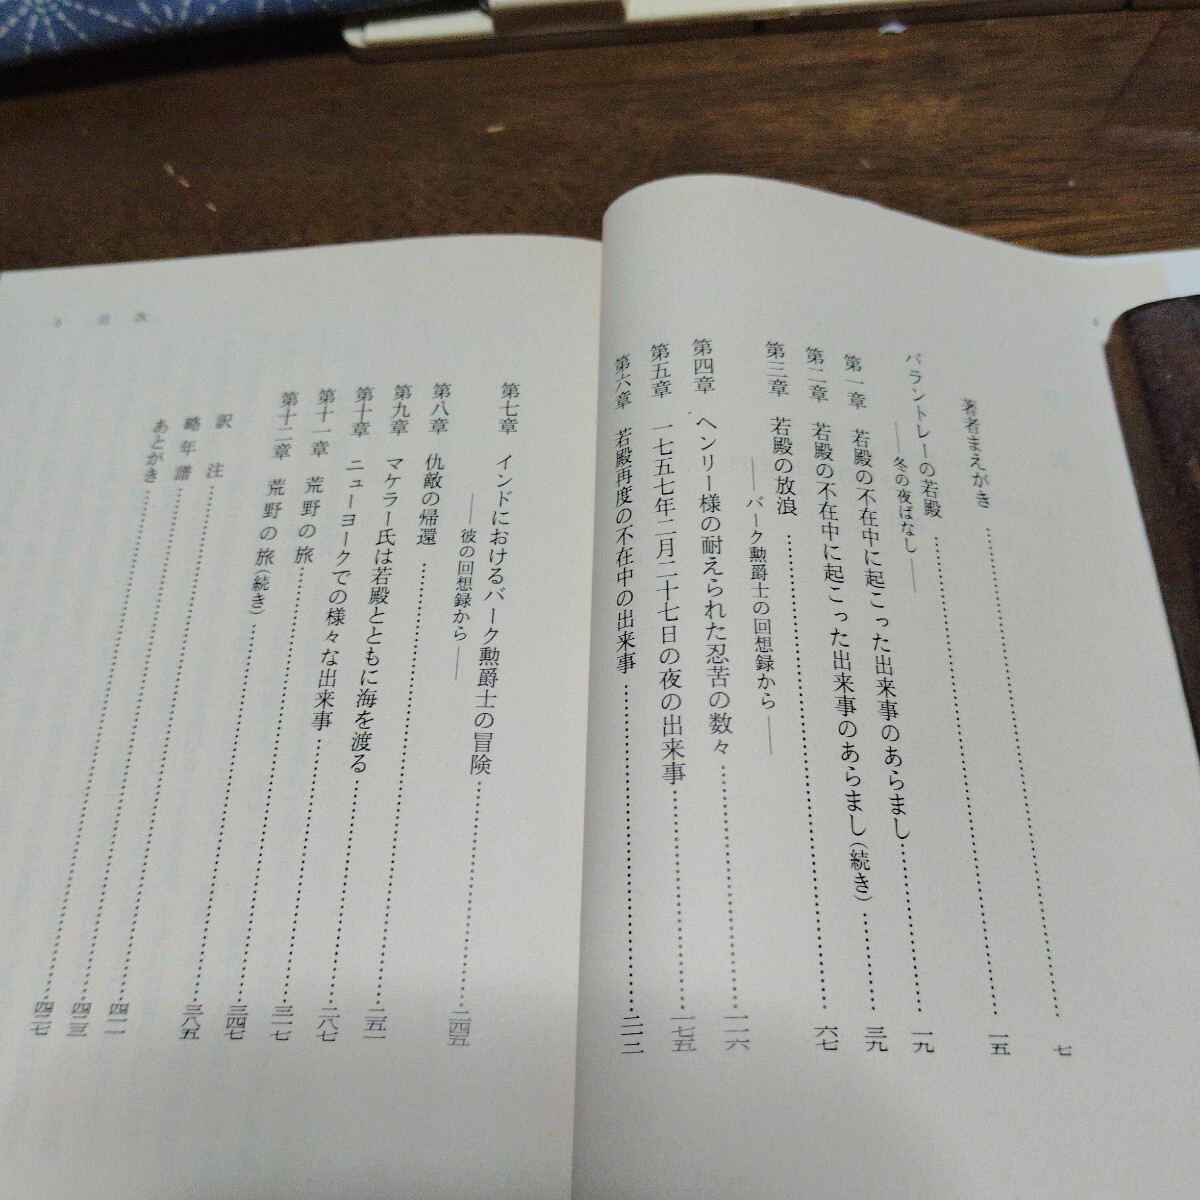 著者まえがき……七
バラントレーの若殿……一五
――冬の夜ばなし――
第一章 若殿の不在中に起こった出来事のあらまし……一九
第二章 若殿の不在中に起こった出来事のあらまし(続き)……三九
第三章 若殿の放浪……六七
――バーク勲爵士の回想録から――
第四章 ヘンリー様の耐えられた忍苦の数々……一一六
第五章 一七五七年二月二十七日の夜の出来事……一七五
第六章 若殿再度の不在中の出来事……二一二
目次
第七章 インドにおけるバーク勲爵士の冒険……二四五
――彼の回想録から――
第八章 仇敵の帰還……二五一
第九章 マケラー氏は若殿とともに海を渡る……二八七
第十章 ニューヨークでの様々な出来事……三一七
第十一章 荒野の旅……三四七
第十二章 荒野の旅(続き)……三八五
訳注……四一一
略年譜……四二三
あとがき……四二七